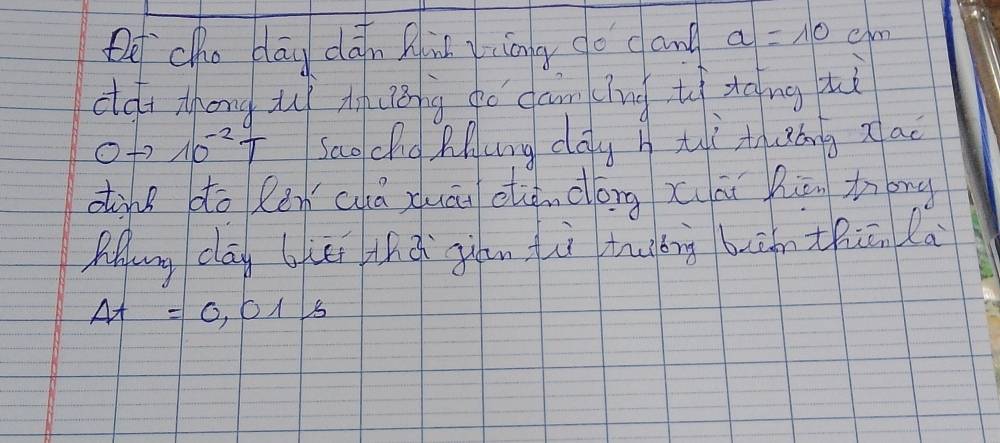 Để cho dây dẫn hình vuông có cạnh a = 10 cm
đặt trong từ trường có cảm ứng từ tăng từ
0 → 10⁻² T sao cho khung dây ⊥ từ trường xác
định độ lớn của xuất điện động xuất hiện trong
khung dây biết thời gian từ trường biến thiên là
Δt = 0,01 s